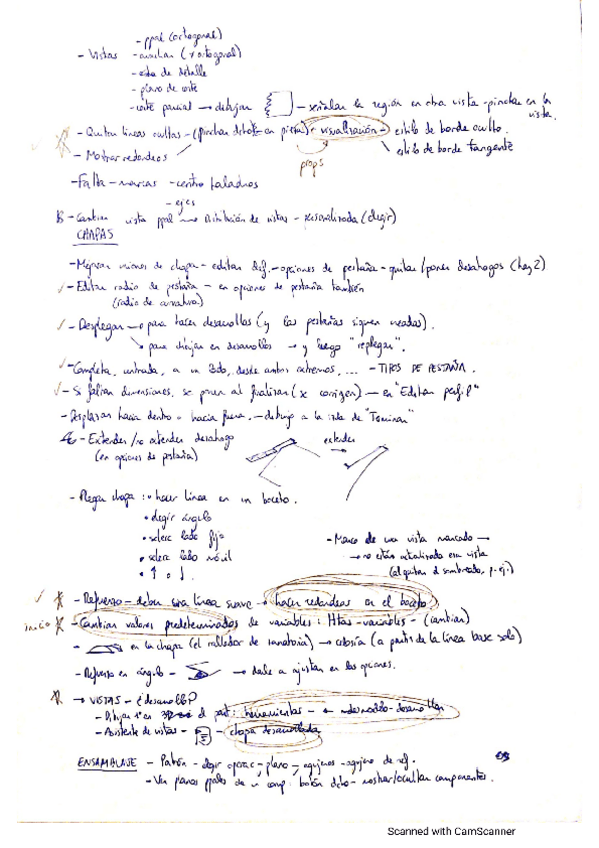 - ppal (octogonal)
- Vistas - auxiliar (x ortogonal)
- vista de detalle
- plano de corte
- corte parcial → dibujan - señalan la región en otra vista - pinchan en la vista.
- Quitan líneas ocultas - (pinchan dcho - en pieza) - visualización - estilo de borde oculto.
props
- Mostrar redondeos
estilo de borde tangente
- Falta - marcas - centro taladros
- ejes
- Cambiar vista ppal Distribución de vistas - personalizada (elegir)
CHAPAS
- Mejoran uniones de chapa - editan def. - opciones de pestaña - quitar/poner desahogos (hay 2)
- Editar radio de pestaña - en opciones de pestaña también
(radio de curvatura)
- Desplegar → para hacer desarrollos (y las pestañas siguen creadas).
→ para dibujar en desarrollo → y luego "replegar".
- Completa, centrada, a un lado, desde ambos extremos, ... - TIPOS DE PESTAÑA.
- Si faltan dimensiones, se ponen al finalizar (x corrigen) - en "Editar perfil"
- Desplazar hacia dentro o hacia fuera. - dibujo a la izda de "Terminar"
- Extender / no extender desahogo
extender
(en opciones de pestaña)
- Plegar chapa: • hacer línea en un boceto.
• elegir ángulo
• selecc lado fijo
• selecc lado móvil
• ↑ o ↓
- Marco de una vista marcado →
→ no están actualizada esa vista
(al quitar el sombreado, p. ej.)
- Refuerzo - deben una línea suave → hacer redondeos en el boceto
inicio - Cambian valores predeterminados de variables: Htas - variables - (cambiar)
- en la chapa (el rallador de zanahoria) → celosía (a partir de la línea base solo)
- Refuerzo en ángulo - → dale a ajustar en las opciones.
→ VISTAS - ¿desarrollo?
- Dibujan 1º en el part: herramientas - modelo - desarrollar
- Asistente de vistas - - chapa desarrollada
ENSAMBLAJE - Patrón - elegir operac - plano - agujeros - agujero de ref.
- Ver planos ppales de un comp: botón dcho - mostrar/ocultar componentes.
Scanned with CamScanner